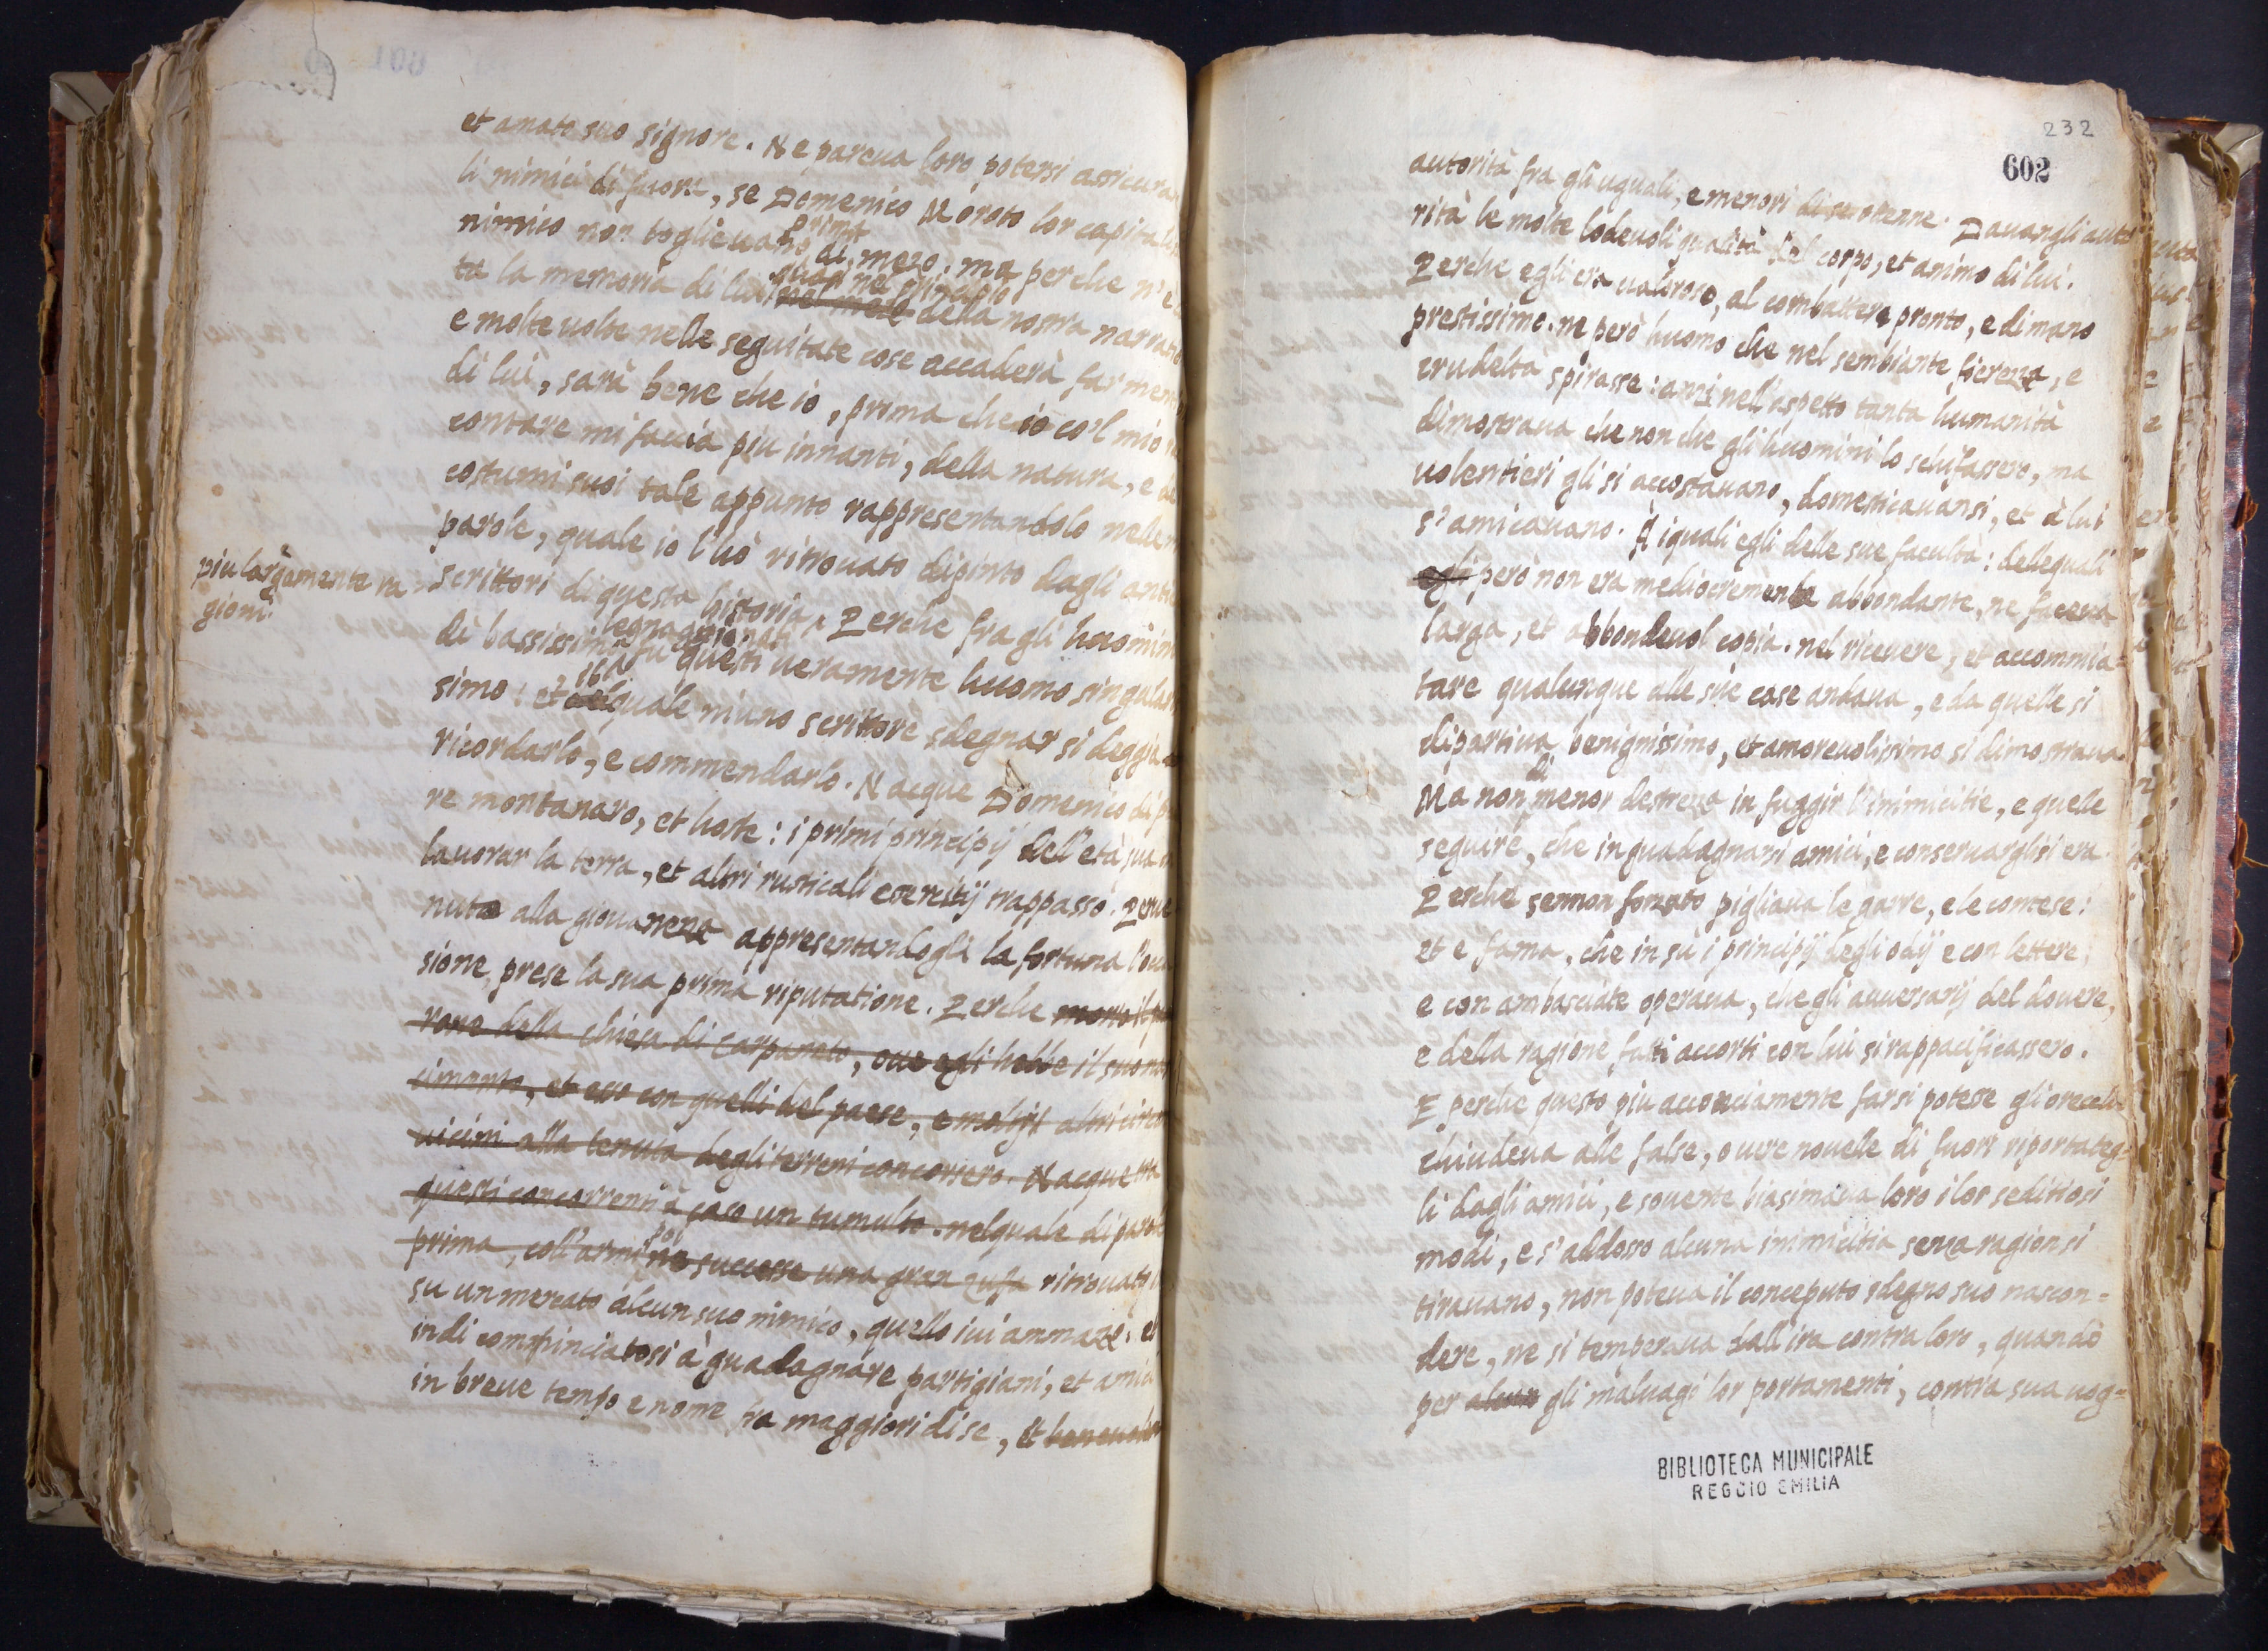 et amato suo signore. Ne pareua loro potersi assicurar
li nimici di fuora, se Domenico Moroto lor capital
nimico non toglieuano prima di mezo: ma perche n'è
ta la memoria di lui quasi ne principio nel mezo della nostra narratio
e molte uolte nelle seguitate cose accaderà far ment
di lui, sarà bene che io, prima che io co'l mio
contare mi faccia piu innanti, della natura, e de
costumi suoi tale appunto rappresentandolo nelle
parole, quale io l'hò ritrouato dipinto dagli anti
piu largamente ra
gioni.
scrittori di questa historia. Perche fra gli huomin
di bassissima legnaggio nati fu questi ueramente huomo singular
simo: et quale niuno scrittore sdegnar si deggia
ricordarlo, e commendarlo. Nacque Domenico di
re montanaro, et hoste: i primi principij dell'età sua
lauorar la terra, et altri rusticali esercitij trappassò. Perue
nuto alla giouanezza appresentandogli la fortuna l'occa
sione, prese la sua prima riputatione. Perche morto il
rono della chiesa di Carpaneto, oue egli hebbe il suo na
cimento, et esso con quelli del paese, e molti altri circon
uicini alla tenuta degli terreni concorsero. Nacque tra
questi concorrenti à caso un tumulto. nelquale di parole
prima, coll'armi poi ne successe una gran zuffa ritrouato
su un mercato alcun suo nimico, quello iui ammazzò. et
indi comminciatosi à guadagnare partigiani, et amici
in breue tempo e nome fra maggiori di se, et beneuolen
232
602
autorità fra gli uguali, e menori di se ottenne. Dauangli auto
rità le molte lodeuoli qualità del corpo, et animo di lui.
Perche egli era ualoroso, al combattere pronto, e di mano
prestissimo. ne però huomo che nel sembiante fierezza, e
crudelta spirasse: anzi nell'aspetto tanta humanità
dimostraua che non che gli huomini lo schifassero, ma
uolentieri gli si accostauano, domesticauansi, et à lui
s'amicauano. A i quali egli delle sue facultà: dellequali
egli però non era mediocremente abbondante, ne faceua
larga, et abbondeuol copia. nel riceuere, et accommia=
tare qualunque alle sue case andaua, e da quelle si
dipartiua benignissimo, et amoreuolissimo si dimostraua.
Ma non di menor destrezza in fuggir l'inimicitie, e quelle
seguire, che in guadagnarsi amici, e conseruarglisi era.
Perche sennon forzato pigliaua le garre, e le contese:
et e fama, che in sù i principij degli odij e con lettere,
e con ambasciate operaua, che gli auuersarij del douere,
e della ragione fatti accorti con lui si rappacificassero.
E perche questo piu acconciamente farsi potesse gli orecchi
chiudeua alle false, o uere nouelle di fuori riportateg=
li dagli amici, e souente biasimaua loro i lor seditiosi
modi, e s'addosso alcuna inimicitia senza ragion si
tirauano, non poteua il conceputo sdegno suo nascon=
dere, ne si temperaua dall'ira contra loro, quando
per alcun gli maluagi lor portamenti, contra sua uog=
BIBLIOTECA MUNICIPALE
REGGIO EMILIA